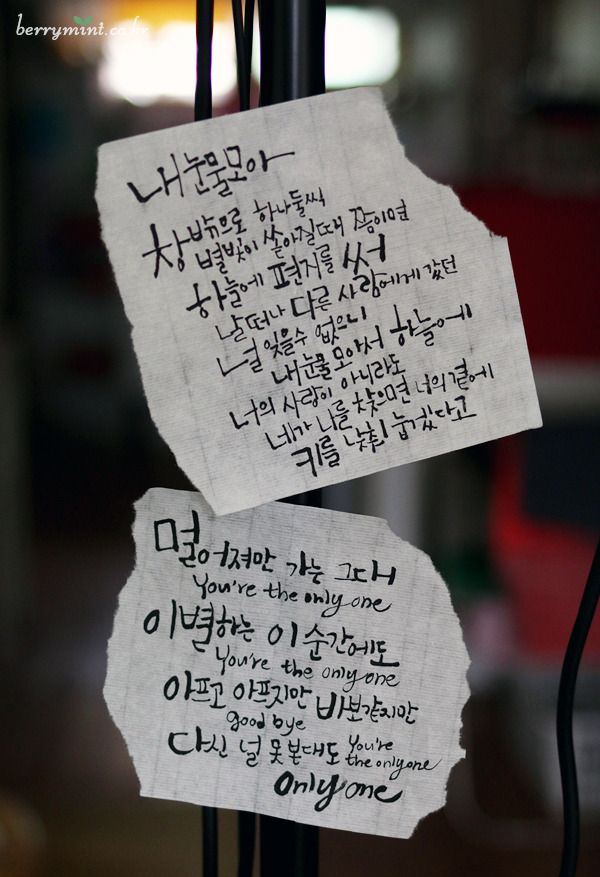 berrymint.co.kr
내눈물모아
창밖으로 하나둘씩
별빛이 쏟아질때 쯤이면
하늘에 편지를 써
날 떠나 다른 사람에게 갔던
널 잊을수 없으니
내눈물 모아서 하늘에
너의 사랑이 아니라도
네가 나를 찾으면 너의 곁에
키를 낮춰 눕겠다고
멀어져만 가는 그대
You're the only one
이별하는 이 순간에도
You're the only one
아프고 아프지만 바보같지만
good bye
다신 널 못 본대도 You're
the only one
only one